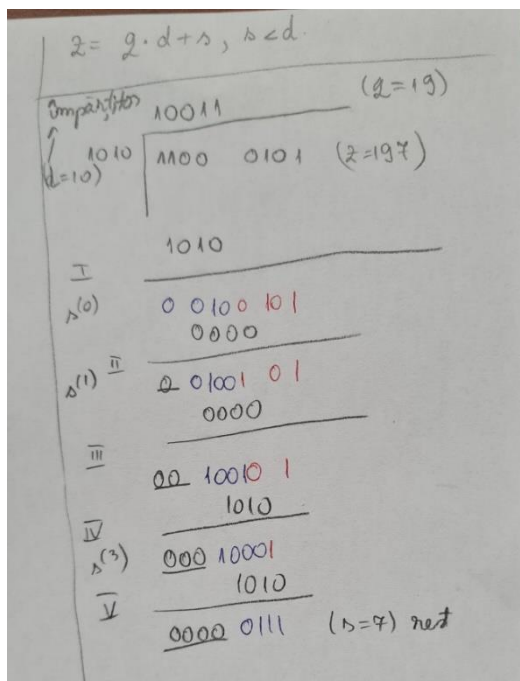 z = q · d + s, s < d.
împărțitor 10011 (q=19)
1010 1100 0101 (z=197)
(d=10)
1010
I
s(0) 0 0100 101
0000
s(1) II 0 01001 01
0000
III
00 10010 1
1010
IV
s(3) 000 10001
1010
V
0000 0111 (s=7) rest